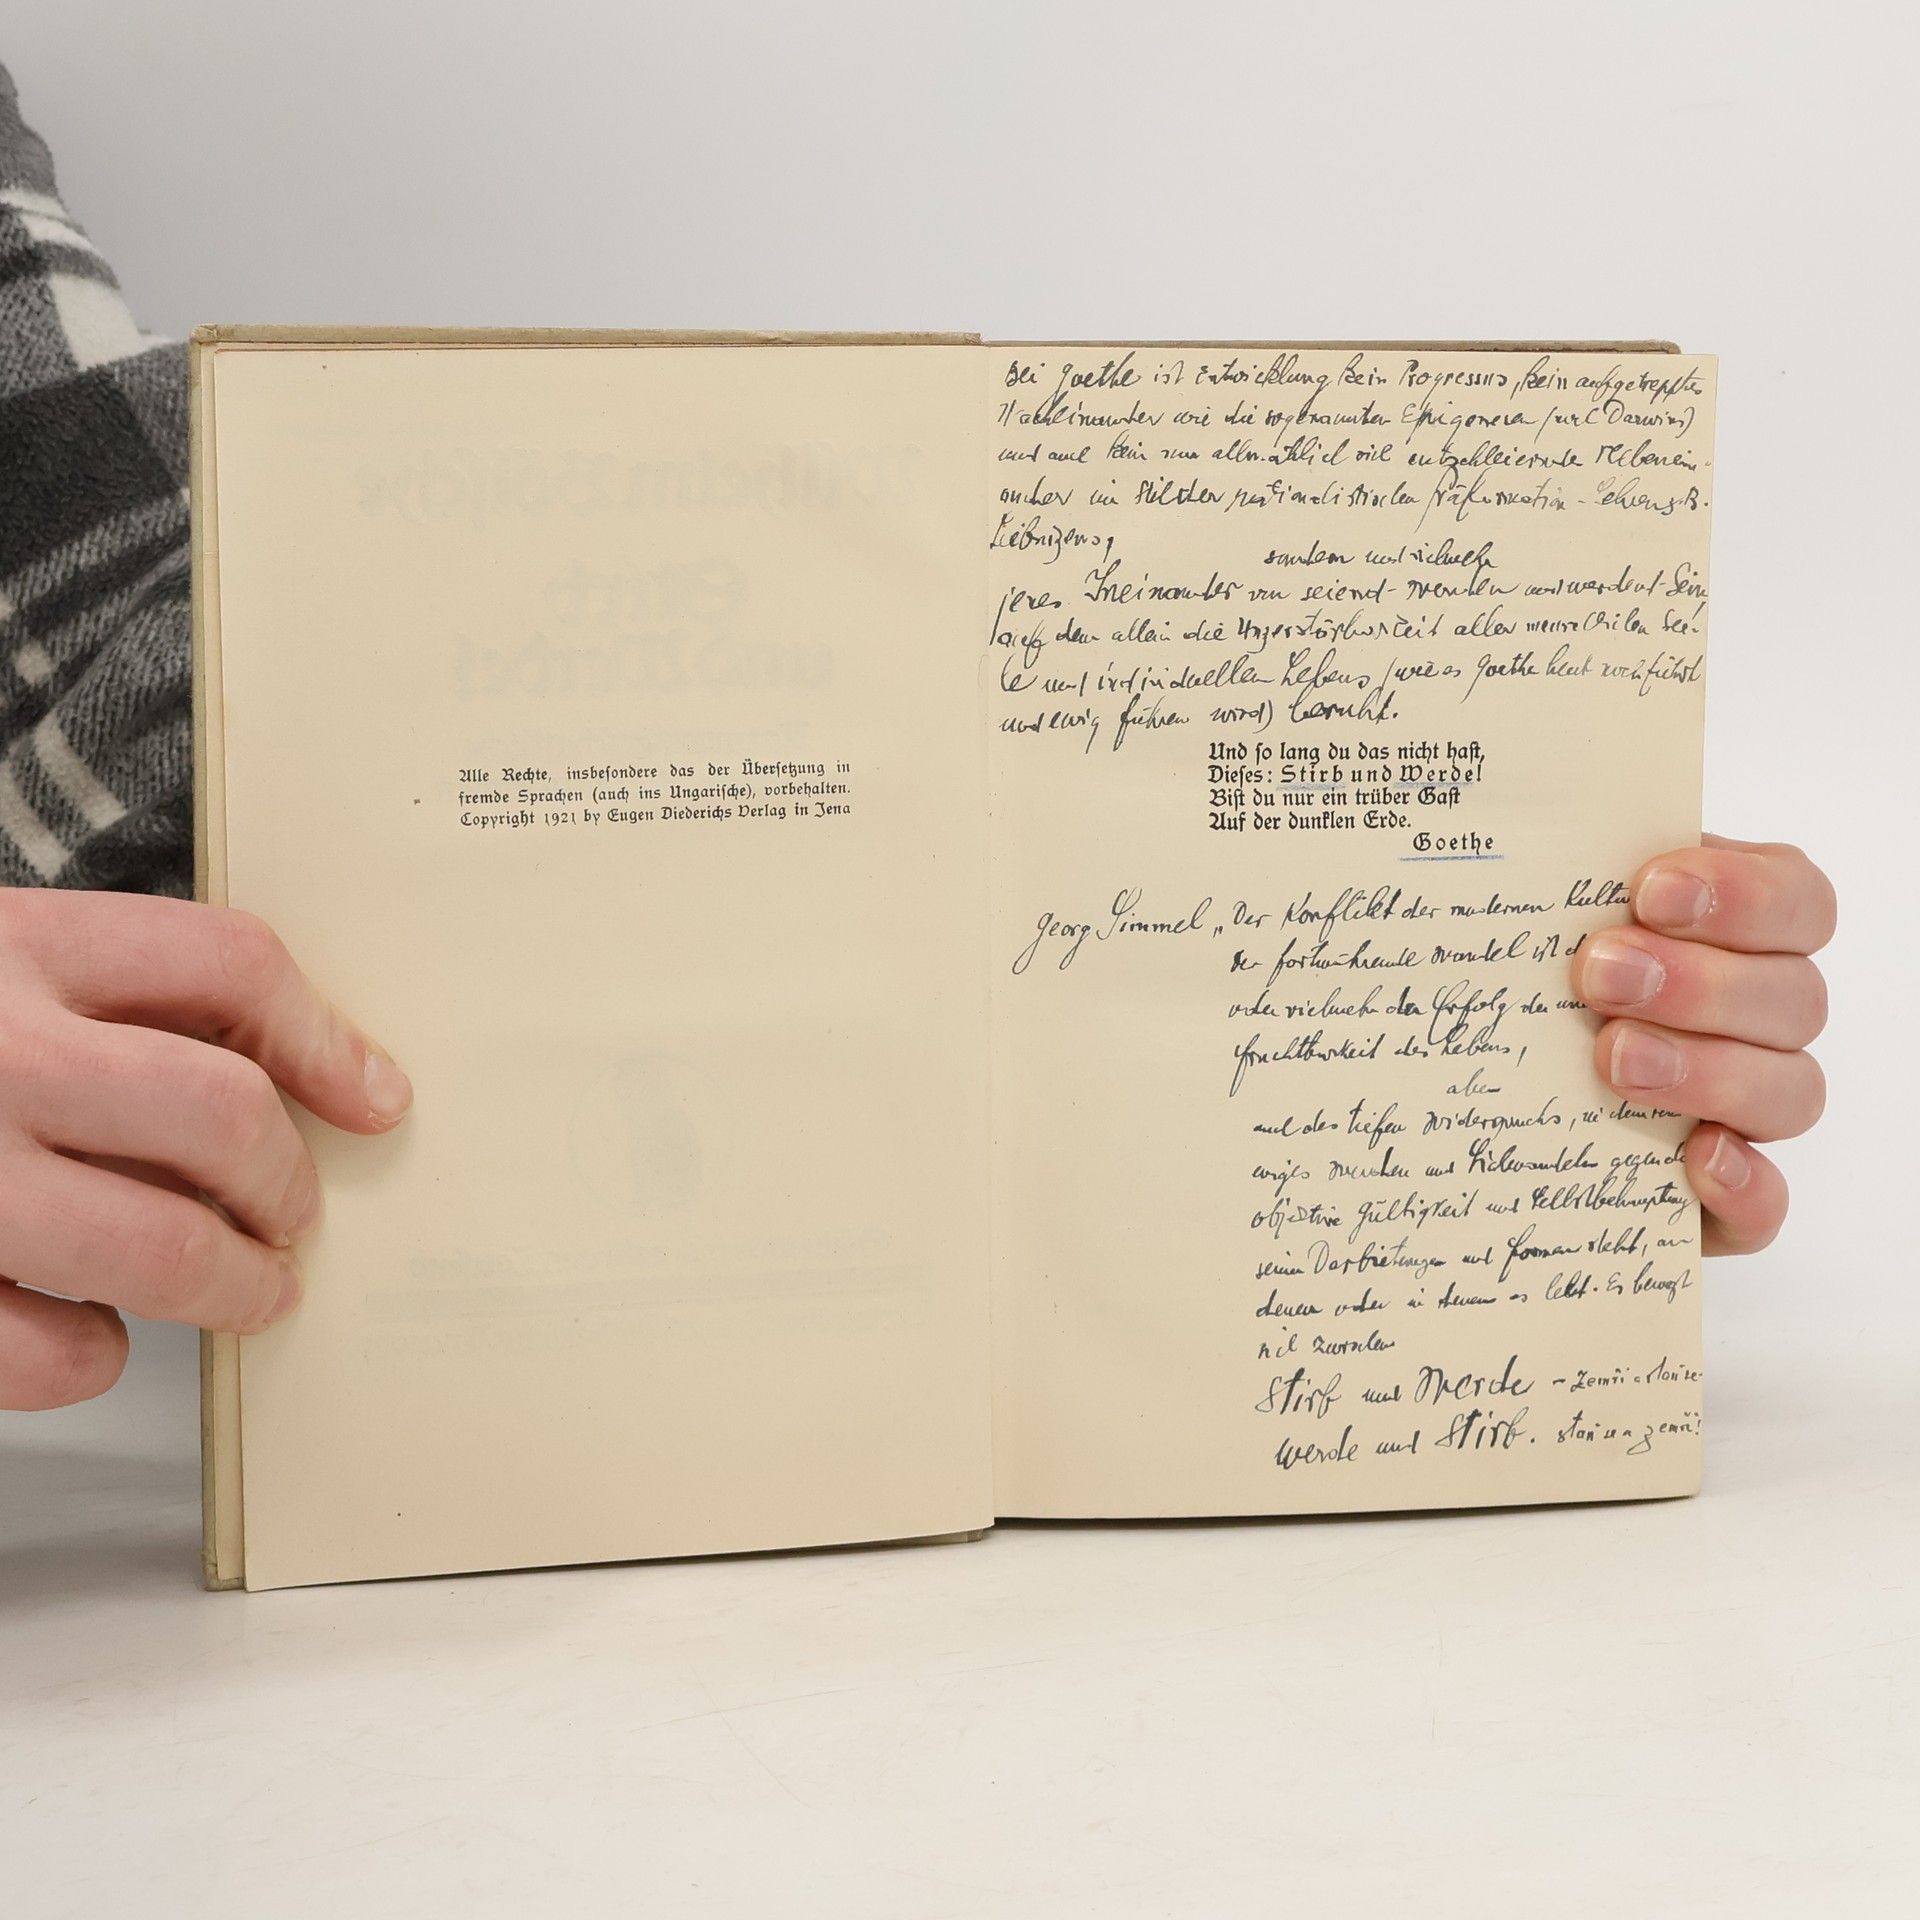 Alle Rechte, insbesondere das der Übersetzung in
fremde Sprachen (auch ins Ungarische), vorbehalten.
Copyright 1921 by Eugen Diederichs Verlag in Jena
Bei Goethe ist Entwicklung kein Progressus, kein aufgetrepptes
Nacheinander wie die sogenannten Epigenesen (auch Darwins)
und auch kein nun allmählich sich entschleierndes Nebenein-
ander im Stil der rationalistischen Präformation-Lehre z. B.
Leibnizens,
sondern und vielmehr
jenes Ineinander von seiend-werden und werdend-Sein
auf dem allein die Unzerstörbarkeit aller menschlichen See-
le und individuellen Lebens (wie es Goethe heut noch führt
und ewig führen wird) beruht.
Und so lang du das nicht hast,
Dieses: Stirb und Werde!
Bist du nur ein trüber Gast
Auf der dunklen Erde.
Goethe
Georg Simmel „Der Konflikt der modernen Kultu
der fortwährende Wandel ist d
oder vielmehr der Erfolg der un
fruchtbarkeit des Lebens,
aber
auch des tiefen Widerspruchs, in dem sein
ewiges Werden und Sichwandeln gegen d
objektive Gültigkeit und Selbstbehauptung
seiner Darbietungen und formen steht, an
denen oder in denen es lebt. Es bewegt
sich zwischen
Stirb und Werde - zemři a staň se-
werde und Stirb. staň se a zemři!